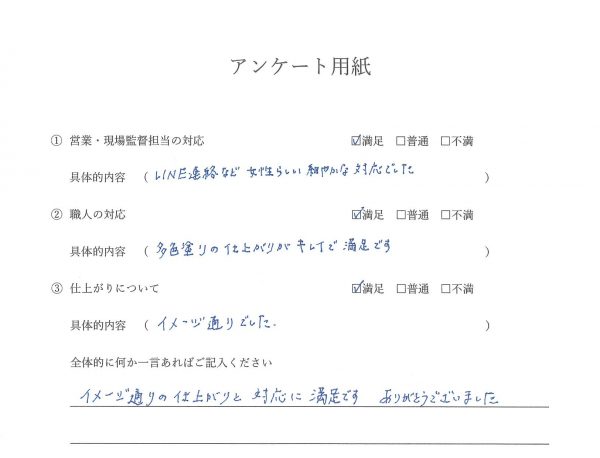 アンケート用紙
① 営業・現場監督担当の対応 ☑満足 ☐普通 ☐不満
具体的内容 （LINE連絡など 女性らしい 細やかな 対応でした）
② 職人の対応 ☑満足 ☐普通 ☐不満
具体的内容 （多色塗りの仕上がりが キレイで 満足です）
③ 仕上がりについて ☑満足 ☐普通 ☐不満
具体的内容 （イメージ通りでした.）
全体的に何か一言あればご記入ください
イメージ通りの仕上がりと 対応に 満足です ありがとうございました